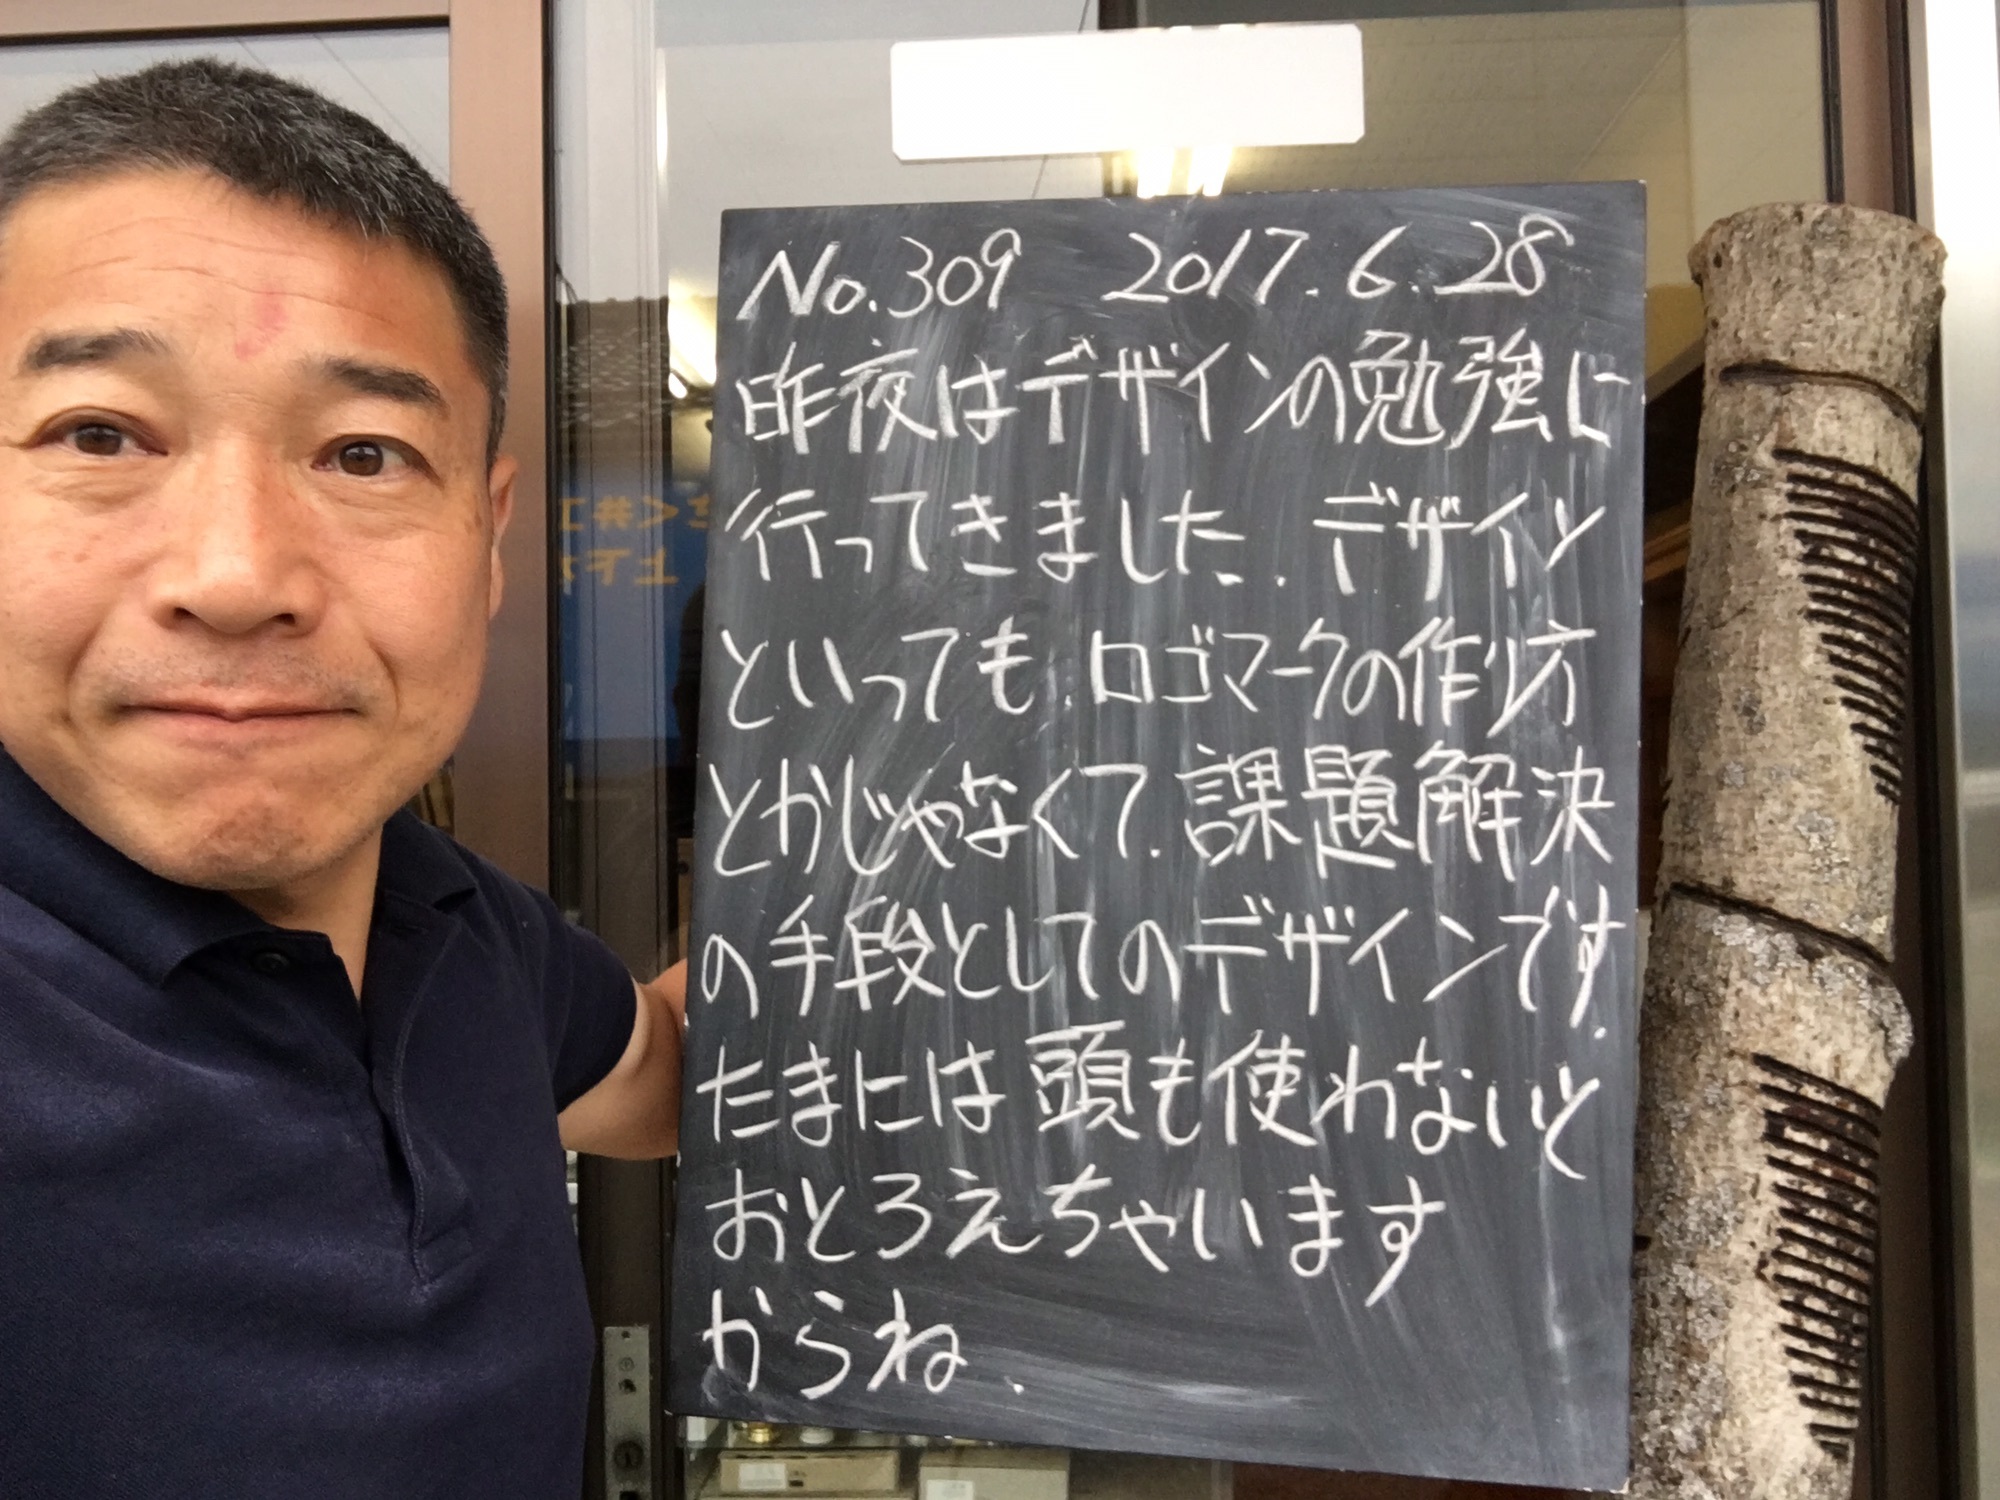 No.309 2017.6.28
昨夜はデザインの勉強に
行ってきました.デザイン
といっても.ロゴマークの作り方
とかじゃなくて.課題解決
の手段としてのデザインです.
たまには頭も使わないと
おとろえちゃいます
からね.